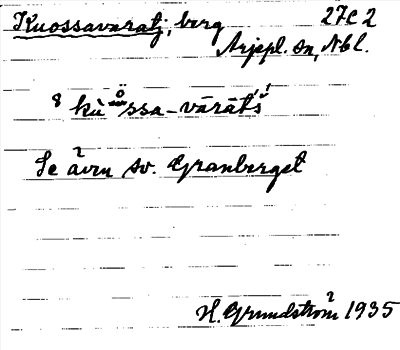 Kuossavaratj, berg 27C2
Arjepl. sn, Nbl.
Se även sv. Granberget
H. Grundström 1935